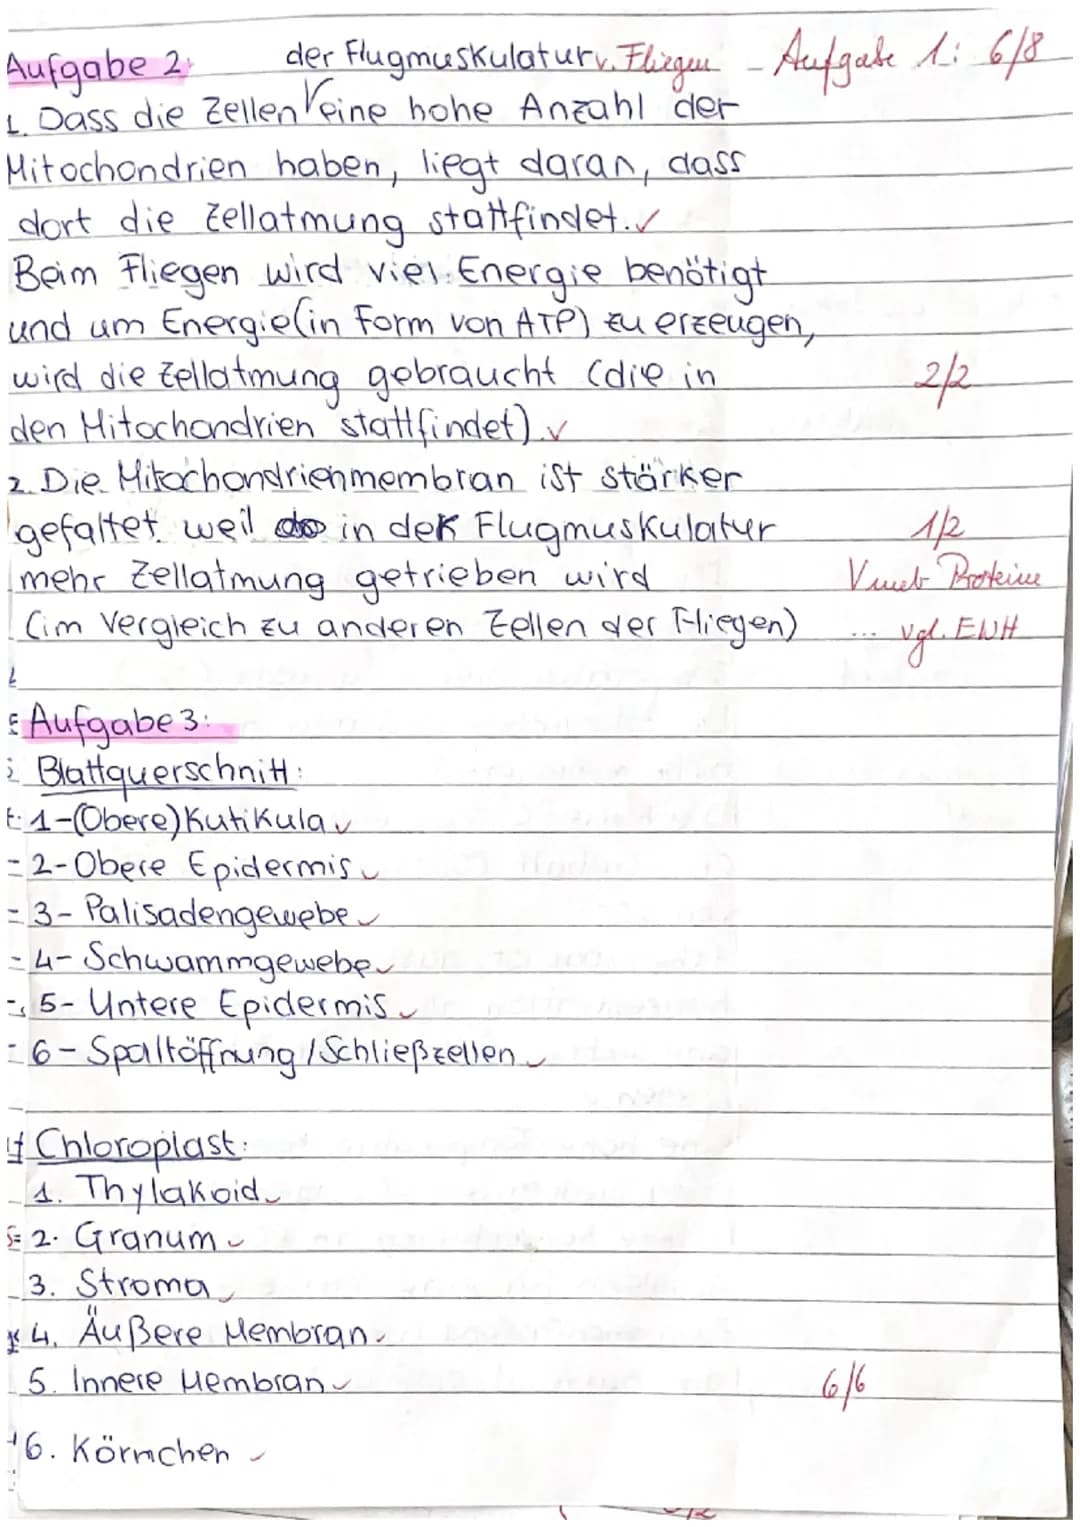 Aufgabe 2: der Flugmuskulatur v. Fliegen - Aufgabe 1: 6/8
1. Dass die Zellen eine hohe Anzahl der
Mitochondrien haben, liegt daran, dass
dort die Zellatmung stattfindet. ✓
Beim Fliegen wird viel Energie benötigt
und um Energie (in Form von ATP) zu erzeugen,
wird die Zellatmung gebraucht (die in 2/2
den Mitochondrien stattfindet). ✓
2. Die Mitochondrienmembran ist stärker
gefaltet weil in der Flugmuskulatur 1/2
mehr Zellatmung getrieben wird Proteine
(im Vergleich zu anderen Zellen der Fliegen) ... vgl. EWH
Aufgabe 3:
Blattquerschnitt:
1-(Obere) Kutikula ✓
2-Obere Epidermis ✓
3- Palisadengewebe ✓
4- Schwammgewebe ✓
5- Untere Epidermis ✓
6- Spaltöffnung / Schließzellen ✓
Chloroplast:
1. Thylakoid ✓
2. Granum ✓
3. Stroma ✓
4. Äußere Membran ✓
5. Innere Membran ✓ 6/6
6. Körnchen ✓